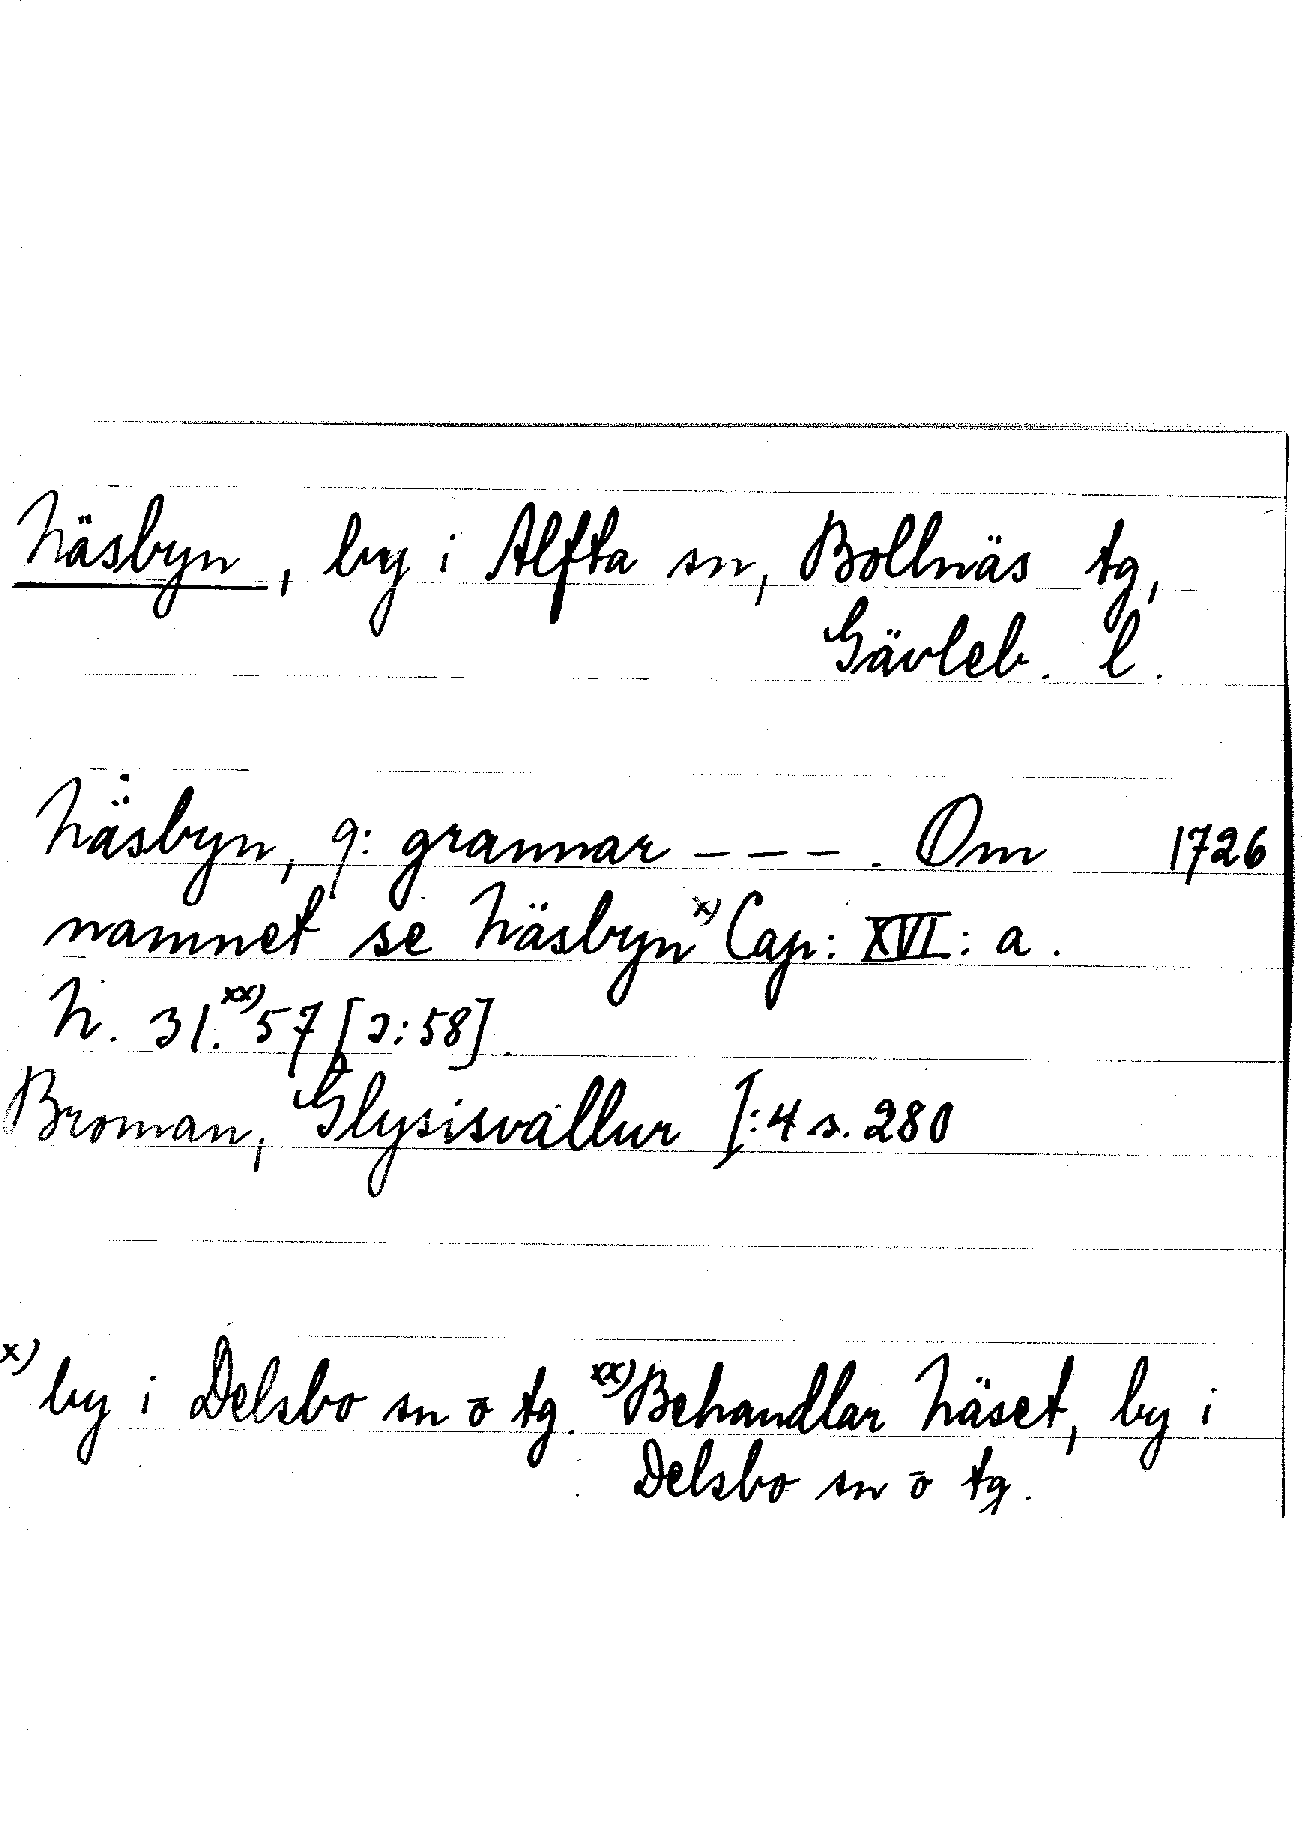 Näsbyn, by i Alfta sn, Bollnäs tg,
Gävleb. l.
Näsbyn, 9: grannar – – –. Om 1726
namnet se Näsbyn x) Cap: XVI: a.
N. 31. xx) 57 [ɔ: 58].
Broman, Glysisvallur I:4 s. 280
x) by i Delsbo sn o tg. xx) Behandlar Näset, by i
Delsbo sn o tg.